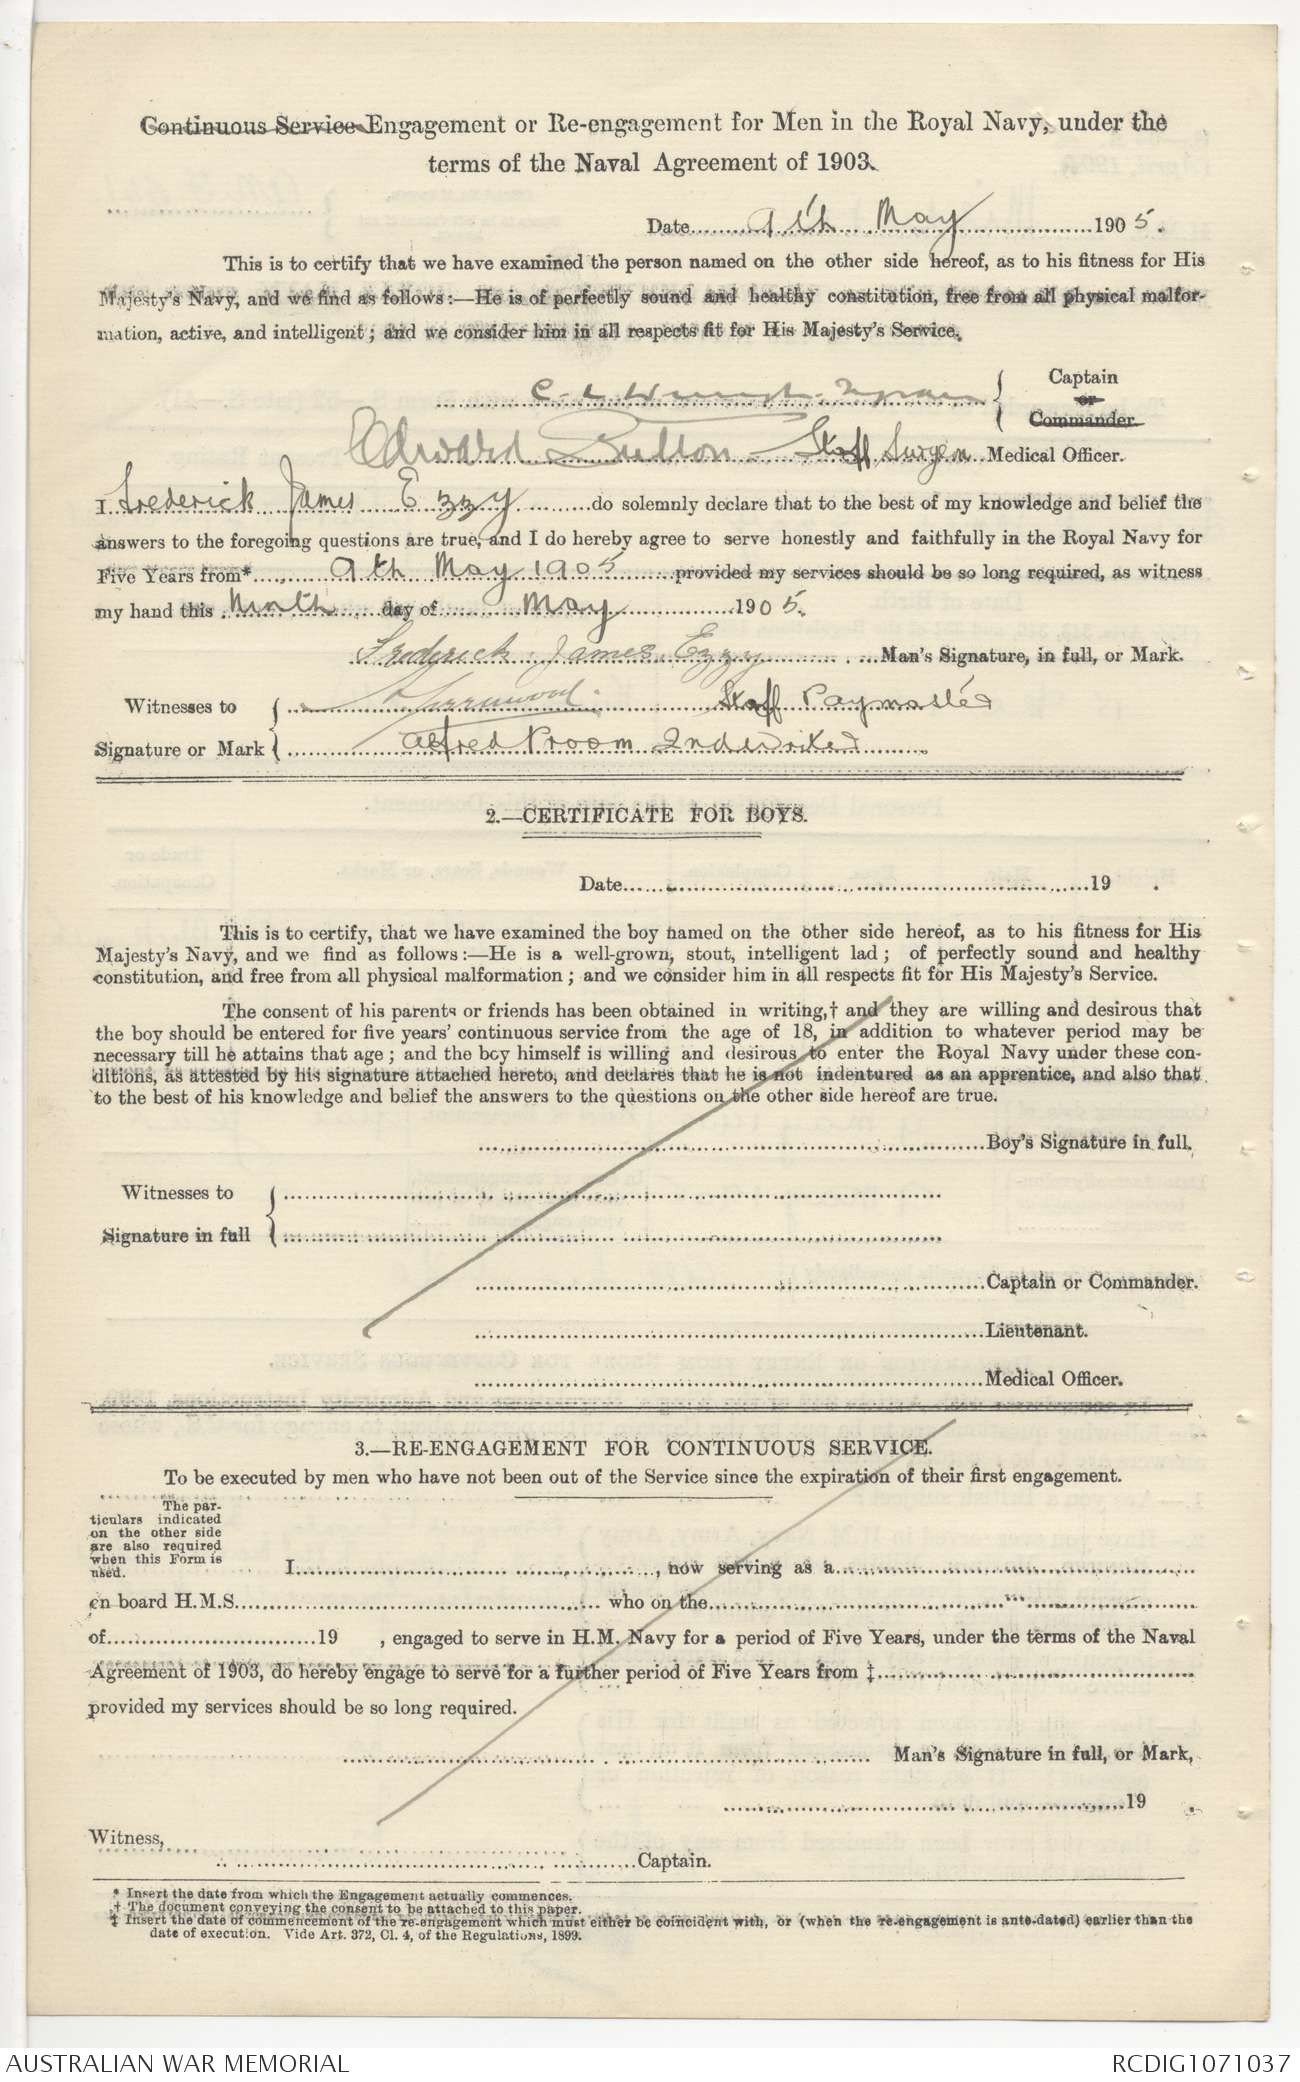 Continuous Service Engagement or Re-engagement for Men in the Royal Navy, under the
terms of the Naval Agreement of 1903.
Date 9th May 1905.
This is to certify that we have examined the person named on the other side hereof, as to his fitness for His
Majesty's Navy, and we find as follows:—He is of perfectly sound and healthy constitution, free from all physical malfor-
mation, active, and intelligent; and we consider him in all respects fit for His Majesty's Service.
Captain
or
Commander.
Edward Sutton Staff Surgeon Medical Officer.
I Frederick James Ezzy do solemnly declare that to the best of my knowledge and belief the
answers to the foregoing questions are true, and I do hereby agree to serve honestly and faithfully in the Royal Navy for
Five Years from* 9th May 1905 provided my services should be so long required, as witness
my hand this Ninth day of May 1905.
Frederick James Ezzy Man's Signature, in full, or Mark.
Witnesses to
Signature or Mark
Staff Paymaster
Alfred Proom 2nd Writer
2.—CERTIFICATE FOR BOYS.
Date 19 .
This is to certify, that we have examined the boy named on the other side hereof, as to his fitness for His
Majesty's Navy, and we find as follows:—He is a well-grown, stout, intelligent lad; of perfectly sound and healthy
constitution, and free from all physical malformation; and we consider him in all respects fit for His Majesty's Service.
The consent of his parents or friends has been obtained in writing,† and they are willing and desirous that
the boy should be entered for five years' continuous service from the age of 18, in addition to whatever period may be
necessary till he attains that age; and the boy himself is willing and desirous to enter the Royal Navy under these con-
ditions, as attested by his signature attached hereto, and declares that he is not indentured as an apprentice, and also that
to the best of his knowledge and belief the answers to the questions on the other side hereof are true.
Boy's Signature in full.
Witnesses to
Signature in full
Captain or Commander.
Lieutenant.
Medical Officer.
3.—RE-ENGAGEMENT FOR CONTINUOUS SERVICE.
To be executed by men who have not been out of the Service since the expiration of their first engagement.
The par-
ticulars indicated
on the other side
are also required
when this Form is
used.
I, now serving as a
on board H.M.S. who on the
of 19 , engaged to serve in H.M. Navy for a period of Five Years, under the terms of the Naval
Agreement of 1903, do hereby engage to serve for a further period of Five Years from ‡
provided my services should be so long required.
Man's Signature in full, or Mark,
19 .
Witness,
Captain.
* Insert the date from which the Engagement actually commences.
† The document conveying the consent to be attached to this paper.
‡ Insert the date of commencement of the re-engagement which must either be coincident with, or (when the re-engagement is ante-dated) earlier than the
date of execution. Vide Art. 372, Cl. 4, of the Regulations, 1899.
AUSTRALIAN WAR MEMORIAL
RCDIG1071037